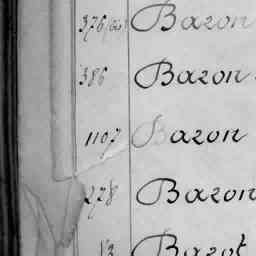 376 Bazon
386 Bazon
1107 Bazon
278 Bazon
13 Bazot